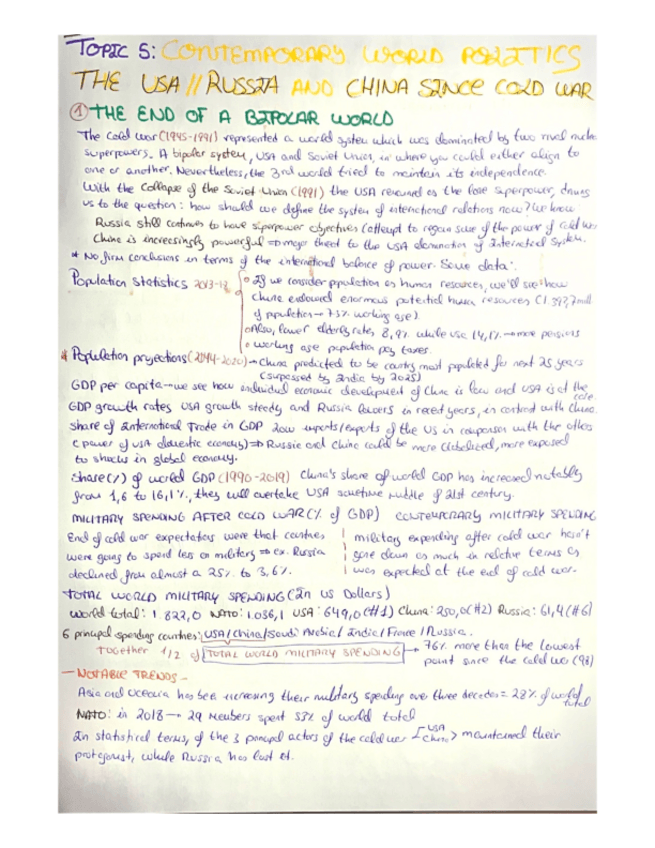 TOPIC 5: CONTEMPORARY WORLD POLITICS
THE USA // RUSSIA AND CHINA SINCE COLD WAR
① THE END OF A BIPOLAR WORLD
The Cold War (1945-1991) represented a world system which was dominated by two rival
superpowers. A bipolar system, USA and Soviet Union, in where you could either align to
one or another. Nevertheless, the 3rd world tried to maintain its independence.
With the Collapse of the Soviet Union (1991) the USA remained as the lone superpower,
us to the question: how should we define the system of international relations now? We know
Russia still continues to have superpower objectives (attempt to regain some of the power of cold war
China is increasingly powerful ⇒ major threat to the USA domination of International System.
* No firm conclusions in terms of the international balance of power. Some data:
Population Statistics 2013-18
• If we consider population as human resources, we'll see how
China endowed enormous potential human resources (1.397,7 mill
of population → 73% working age)
• Also, lower elderly rates, 8,9% while USA 14,1% → more pensions
• working age population pay taxes.
* Population projections (2044-2020) → China predicted to be country most populated for next 25 years
(surpassed by India by 2025)
GDP per capita → we see how individual economic development of China is low and USA is at the
core
GDP growth rates USA growth steady and Russia lowers in recent years, in contrast with China.
Share of International Trade in GDP low imports/exports of the US in comparison with the others
(power of USA domestic economy) ⇒ Russia and China could be more Globalized, more exposed
to shocks in global economy.
Share (%) of world GDP (1990-2019) China's share of world GDP has increased notably
from 1,6 to 16,1%, they will overtake USA sometime middle of 21st century.
MILITARY SPENDING AFTER COLD WAR (% of GDP) CONTEMPORARY MILITARY SPENDING
End of cold war expectations were that countries
were going to spend less on military ⇒ ex. Russia
declined from almost a 25% to 3,6%.
military expending after cold war hasn't
gone down as much in relative terms as
was expected at the end of cold war.
TOTAL WORLD MILITARY SPENDING (In US Dollars)
World total: 1.822,0 NATO: 1.036,1 USA: 649,0 (#1) China: 250,0 (#2) Russia: 61,4 (#6)
6 principal spending countries: USA/China/Saudi Arabia/India/France/Russia.
TOGETHER 1/2 of TOTAL WORLD MILITARY SPENDING → 76% more than the lowest
point since the cold war (98)
- NOTABLE TRENDS -
Asia and Oceania has been increasing their military spending over three decades = 28% of world
total
NATO: in 2018 → 29 members spent 53% of world total
In statistical terms, of the 3 principal actors of the cold war [USA China > maintained their
protagonist, while Russia has lost it.